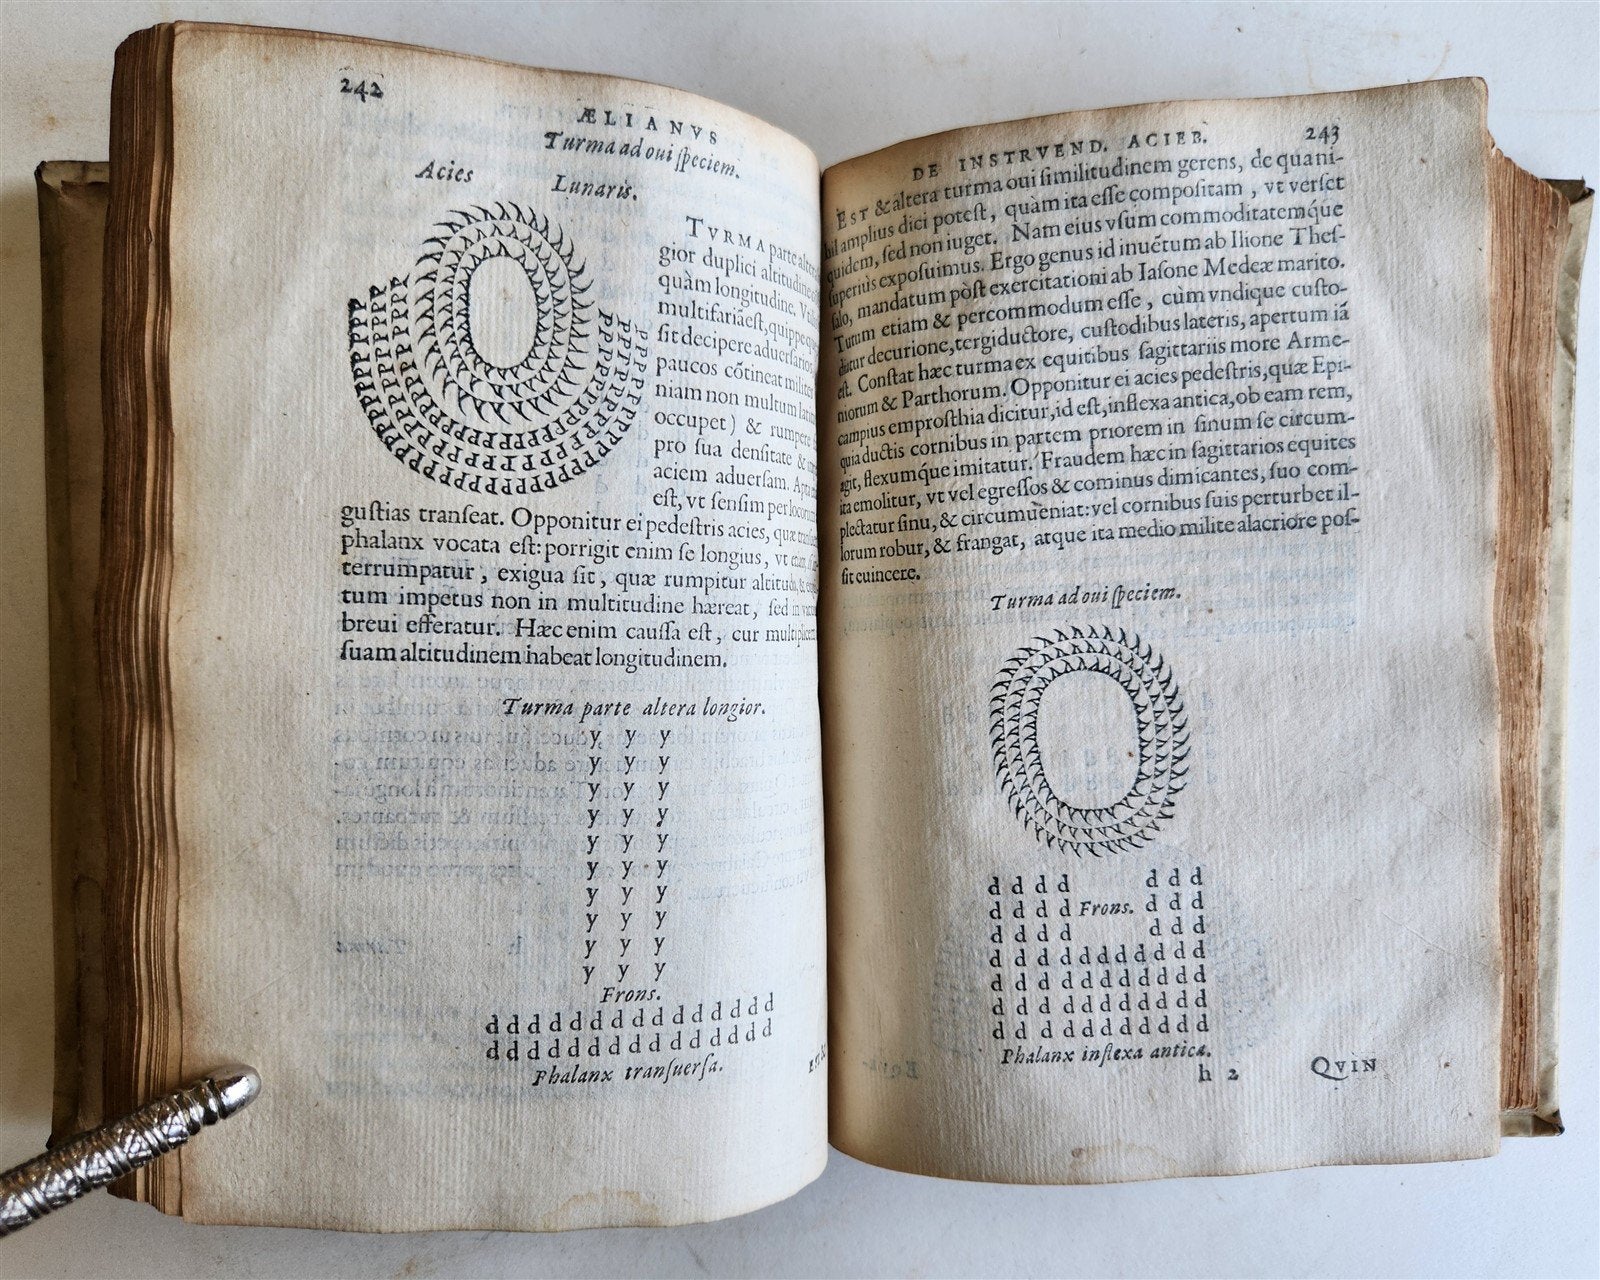 242
ÆLIANVS
Turma ad oui ſpeciem.
Acies Lunaris.
TVRMA parte altera
gior duplici altitudine
quàm longitudine. 
multifariã eſt, quippe
ſit decipere aduerſarios
paucos cõtineat milites
niam non multum
occupet) & rumpere
pro ſua denſitate &
aciem aduerſam. 
eſt, vt ſenſim per
guſtias tranſeat. Opponitur ei pedeſtris acies, quæ
phalanx vocata eſt: porrigit enim ſe longius, vt
terrumpatur, exigua ſit, quæ rumpitur
tum impetus non in multitudine hæreat, ſed in
breui efferatur. Hæc enim cauſſa eſt, cur
ſuam altitudinem habeat longitudinem.
Turma parte altera longior.
y y y
y y y
y y y
y y y
y y y
y y y
y y y
y y y
y y y
y y y
Frons.
d d d d d d d d d d d d d d
d d d d d d d d d d d d d d
Phalanx tranſuerſa.
DE INSTRVEND. ACIEB. 243
EST & altera turma oui ſimilitudinem gerens, de qua ni-
hil amplius dici poteſt, quàm ita eſſe compoſitam, vt verſet
quidem, ſed non iuget. Nam eius vſum commoditatemq́ue
ſuperiùs expoſuimus. Ergo genus id inuẽtum ab Ilione Theſ-
ſalo, mandatum pòſt exercitationi ab Iaſone Medeæ marito.
Tutum etiam & percommodum eſſe, cùm vndique cuſto-
diatur decurione, tergiductore, cuſtodibus lateris, apertum iã
eſt. Conſtat hæc turma ex equitibus ſagittariis more Arme-
niorum & Parthorum. Opponitur ei acies pedeſtris, quæ Epi-
campius emproſthia dicitur, id eſt, inflexa antica, ob eam rem,
quia ductis cornibus in partem priorem in ſinum ſe circum-
agit, flexumq́ue imitatur. Fraudem hæc in ſagittarios equites
ita emolitur, vt vel egreſſos & cominus dimicantes, ſuo com-
plectatur ſinu, & circumueniat: vel cornibus ſuis perturbet il-
lorum robur, & frangat, atque ita medio milite alacriore poſ-
ſit euincere.
Turma ad oui ſpeciem.
d d d d d d d
d d d d Frons. d d d
d d d d d d d
d d d d d d d d d d
d d d d d d d d d d
d d d d d d d d d d
d d d d d d d d d d
Phalanx inflexa antica.
h 2 QVIN